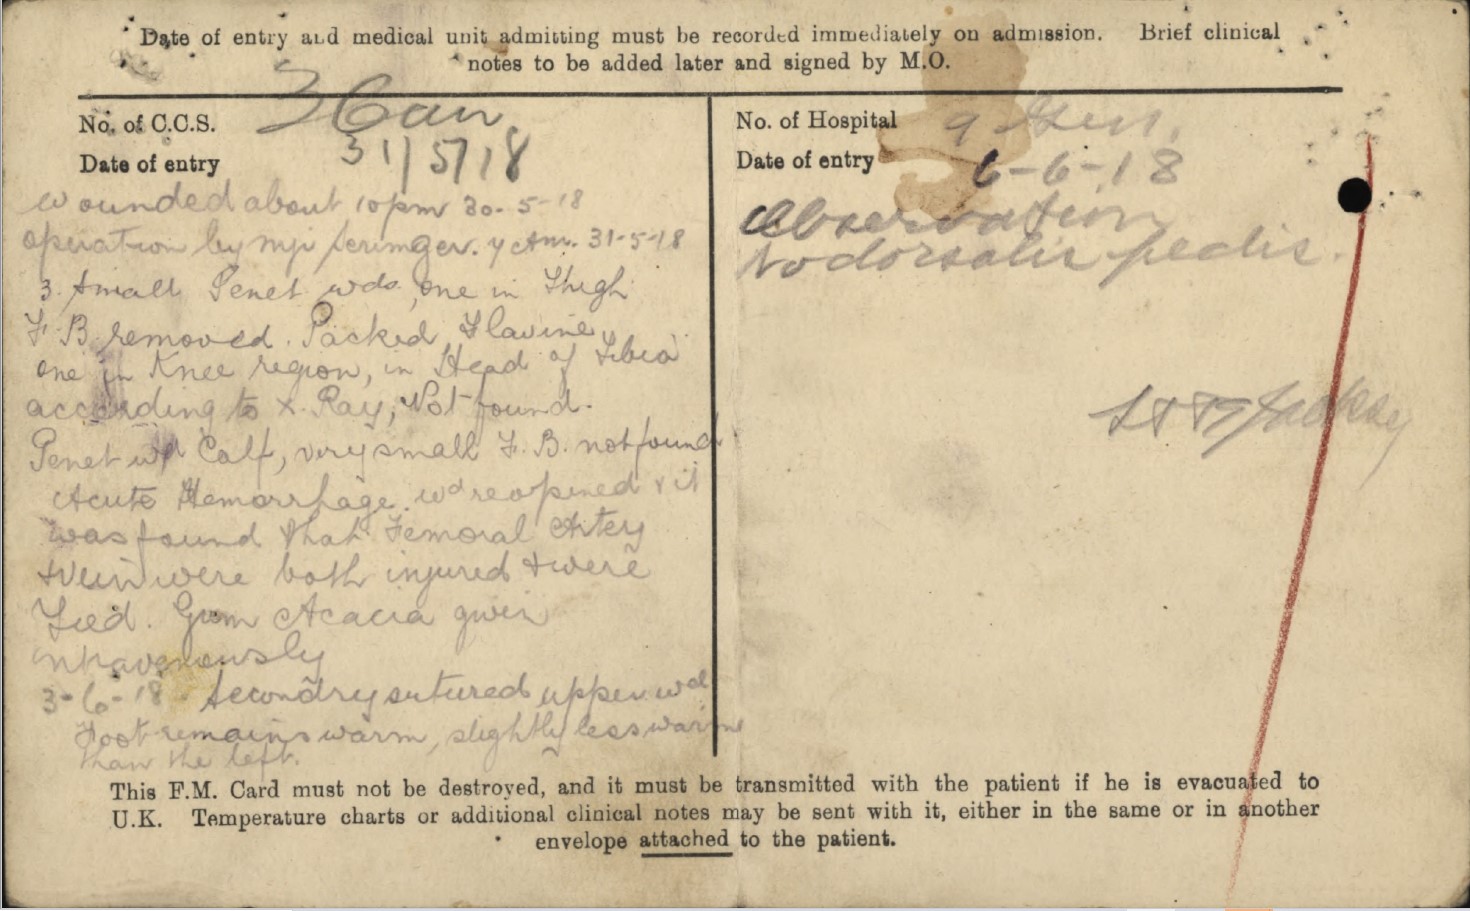 Date of entry and medical unit admitting must be recorded immediately on admission. Brief clinical
notes to be added later and signed by M.O.
No. of C.C.S. 3 Can
Date of entry 31/5/18
wounded about 10pm 30-5-18
operation by Scrimger. 31-5-18
3 small Penet wds, one in Thigh
F.B. removed. Packed Flavine
one in Knee region, in Head of Tibia
according to X. Ray, Not found.
Penet wd Calf, very small F.B. not found
Acute Hemorrhage. wd reopened & it
was found that Femoral Artery
& Vein were both injured & were
Tied. Gum Acacia given
intravenously
3-6-18 Secondry sutured upper wd
Foot remains warm, slightly less warm
than the left.
No. of Hospital 9 Gen.
Date of entry 6-6-18
Observation
No dorsalis pedis.
This F.M. Card must not be destroyed, and it must be transmitted with the patient if he is evacuated to
U.K. Temperature charts or additional clinical notes may be sent with it, either in the same or in another
envelope attached to the patient.